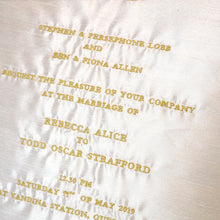 STEPHEN & PERSEPHONE LOBB
AND
BEN & FIONA ALLEN
REQUEST THE PLEASURE OF YOUR COMPANY
AT THE MARRIAGE OF
REBECCA ALICE
TO
TODD OSCAR STRAFFORD
12.30 PM
SATURDAY OF MAY 2019
STATION,